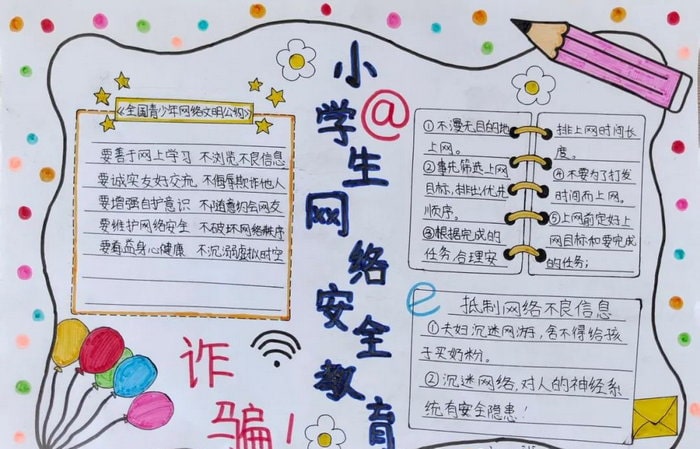 小学生网络安全教育
@
《全国青少年网络文明公约》
要善于网上学习 不浏览不良信息
要诚实友好交流 不侮辱欺诈他人
要增强自护意识 不随意约会网友
要维护网络安全 不破坏网络秩序
要有益身心健康 不沉溺虚拟时空
诈
骗!
①不漫无目的地
上网。
②事先筛选上网
目标,排出优先
顺序。
③根据完成的
任务,合理安
排上网时间长
度。
④不要为了打发
时间而上网。
⑤上网前定好上
网目标和要完成
的任务;
e
抵制网络不良信息
①夫妇沉迷网游,舍不得给孩
子买奶粉。
②沉迷网络,对人的神经系
统有安全隐患!